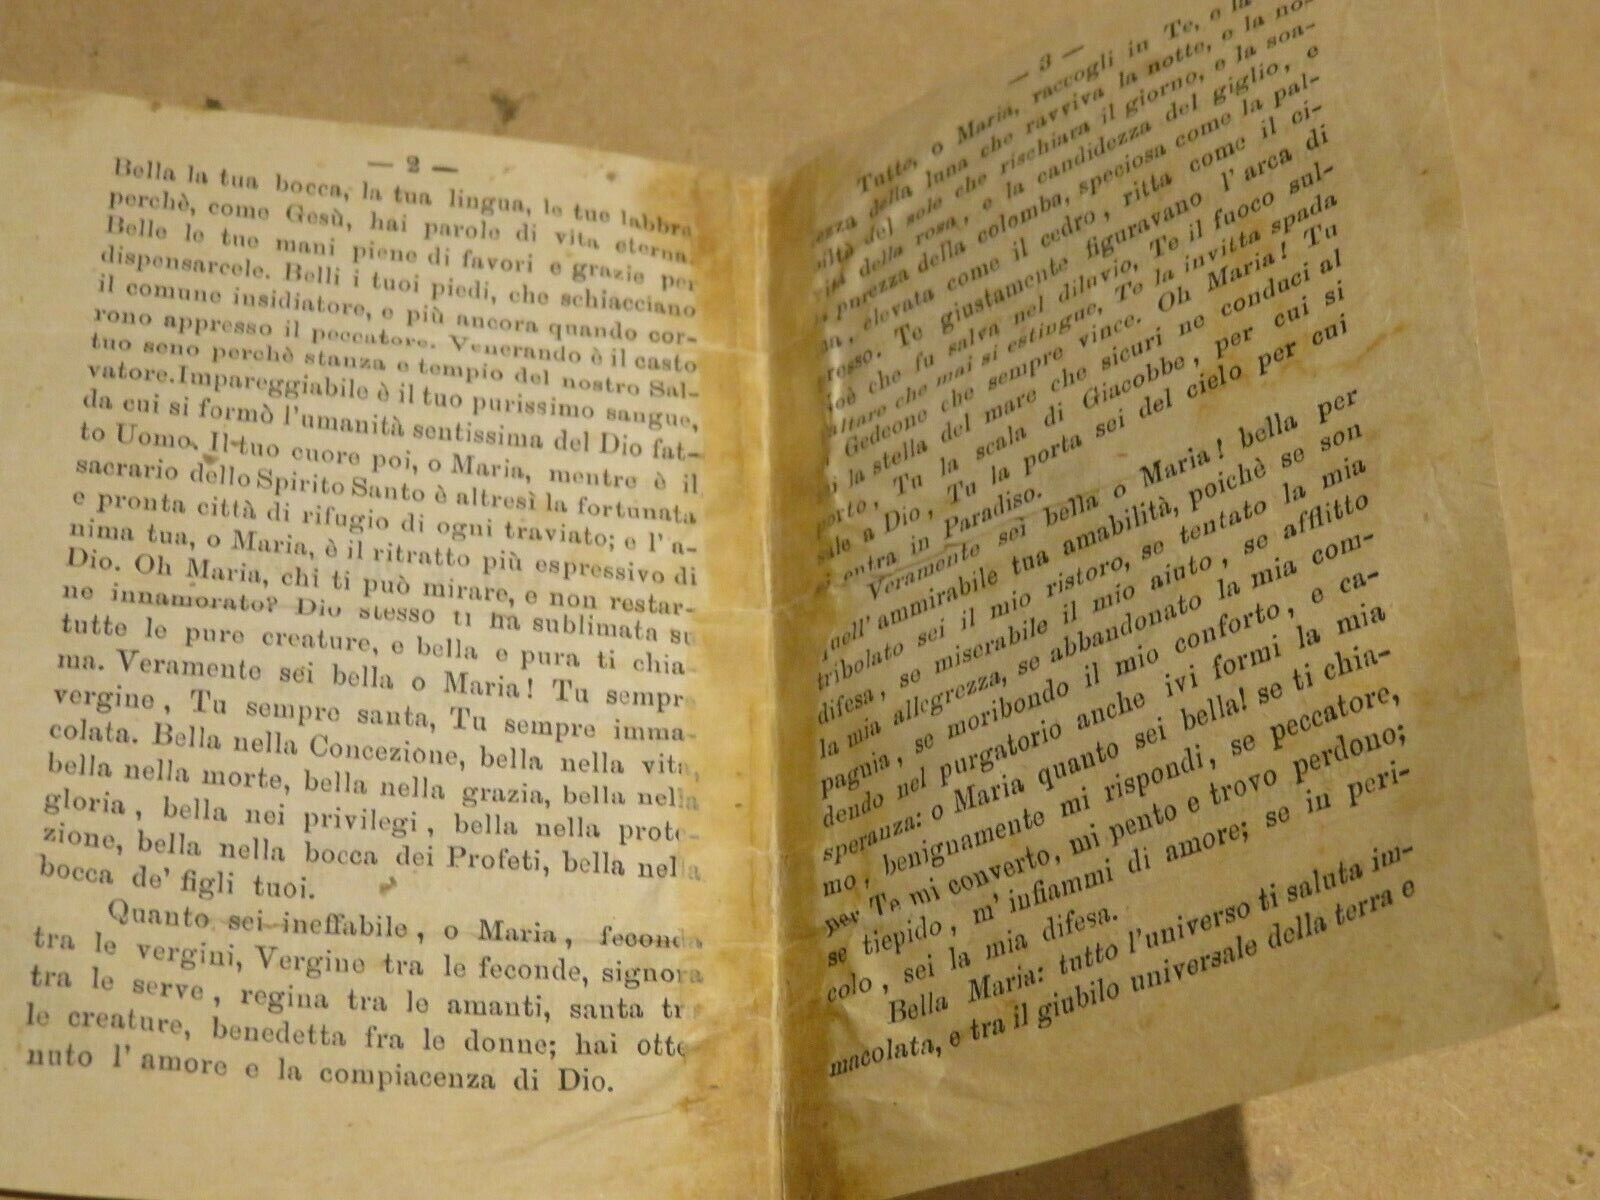 — 2 —
Bella la tua bocca, la tua lingua, le tue labbra
perchè, come Gesù, hai parole di vita eterna.
Belle le tue mani piene di favori e grazie per
dispensarcele. Belli i tuoi piedi, che schiacciano
il comune insidiatore, e più ancora quando cor-
rono appresso il peccatore. Venerando è il casto
tuo seno perchè stanza e tempio del nostro Sal-
vatore. Impareggiabile è il tuo purissimo sangue,
da cui si formò l'umanità sentissima del Dio fat-
to Uomo. Il tuo cuore poi, o Maria, mentre è il
sacrario dello Spirito Santo è altresì la fortunata
e pronta città di rifugio di ogni traviato; e l'a-
nima tua, o Maria, è il ritratto più espressivo di
Dio. Oh Maria, chi ti può mirare, e non restar-
ne innamorato? Dio stesso ti ha sublimata su
tutte le pure creature, e bella e pura ti chia
ma. Veramente sei bella o Maria! Tu sempre
vergine, Tu sempre santa, Tu sempre imma-
colata. Bella nella Concezione, bella nella vita,
bella nella morte, bella nella grazia, bella nella
gloria, bella nei privilegi, bella nella prote-
zione, bella nella bocca dei Profeti, bella nella
bocca de' figli tuoi.
Quanto sei ineffabile, o Maria, feconda
tra le vergini, Vergine tra le feconde, signora
tra le serve, regina tra le amanti, santa tra
le creature, benedetta fra le donne; hai otte
nuto l'amore e la compiacenza di Dio.
— 3 —
Tutte, o Maria, raccogli in Te, e la
della luna che ravviva la notte, e la no-
del sole che rischiara il giorno, e la soa-
della rosa, e la candidezza del giglio, e
purezza della colomba, speciosa come la pal-
elevata come il cedro, ritta come il ci-
presso. Te giustamente figuravano l'arca di
Noè che fu salva nel diluvio, Te il fuoco sul-
l'altare che mai si estingue, Te la invitta spada
Gedeone che sempre vince. Oh Maria! Tu
la stella del mare che sicuri ne conduci al
porto, Tu la scala di Giacobbe, per cui si
sale a Dio, Tu la porta sei del cielo per cui
si entra in Paradiso.
Veramente sei bella o Maria! bella per
quell'ammirabile tua amabilità, poichè se son
tribolato sei il mio ristoro, se tentato la mia
difesa, se miserabile il mio aiuto, se afflitto
la mia allegrezza, se abbandonato la mia com-
pagnia, se moribondo il mio conforto, e ca-
dendo nel purgatorio anche ivi formi la mia
speranza: o Maria quanto sei bella! se ti chia-
mo, benignamente mi rispondi, se peccatore,
per Te mi converto, mi pento e trovo perdono;
se tiepido, m'infiammi di amore; se in peri-
colo, sei la mia difesa.
Bella Maria: tutto l'universo ti saluta im-
macolata, e tra il giubilo universale della terra e